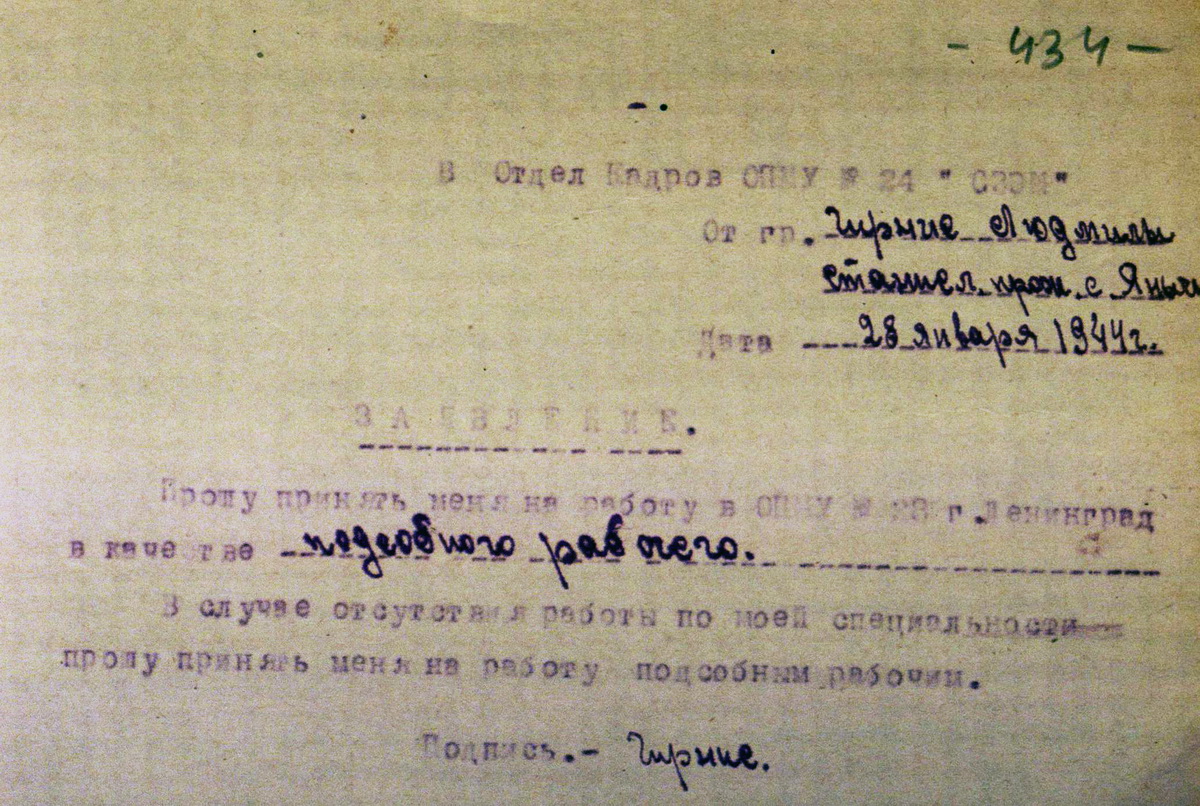 - 434 -
В Отдел Кадров ОПМУ № 24 " СЗЭМ"
От гр. Людмилы
прож. с
Дата 28 января 1944 г.
ЗАЯВЛЕНИЕ.
Прошу принять меня на работу в ОПМУ № г. Ленинград
в качестве подсобного рабочего.
В случае отсутствия работы по моей специальности
прошу принять меня на работу подсобным рабочим.
Подпись.-